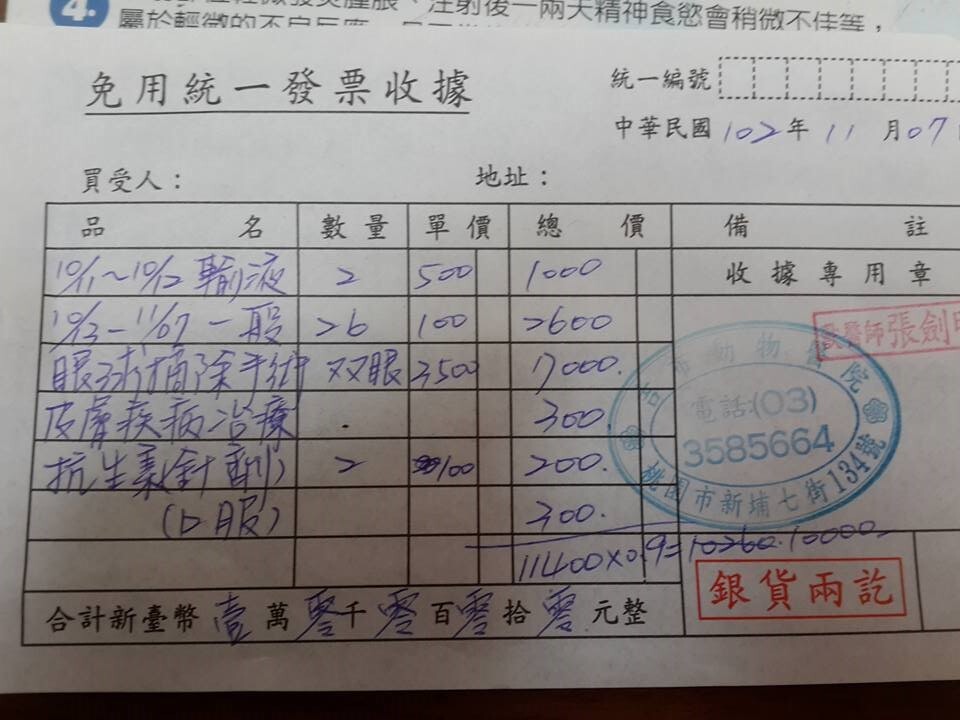 4.
注射後一兩天精神食慾會稍微不佳等，
屬於輕微的不良反應，
免用統一發票收據
統一編號
中華民國 102 年 11 月 07
買受人： 地址：
品名 數量 單價 總價 備註
10/11~10/12 輸液 2 500 1000
收據專用章
10/13-11/07 一般 26 100 2600
眼球摘除手術 双眼 3500 7000.
皮膚疾病治療 . 300.
抗生素(針劑) 2 100 200.
(口服) 300.
11400×0.9=10260. 10000
合計新臺幣壹萬零千零百零拾零元整
獸醫師張劍
市動物 院
電話:(03)
3585664
桃園市新埔七街134號
銀貨兩訖